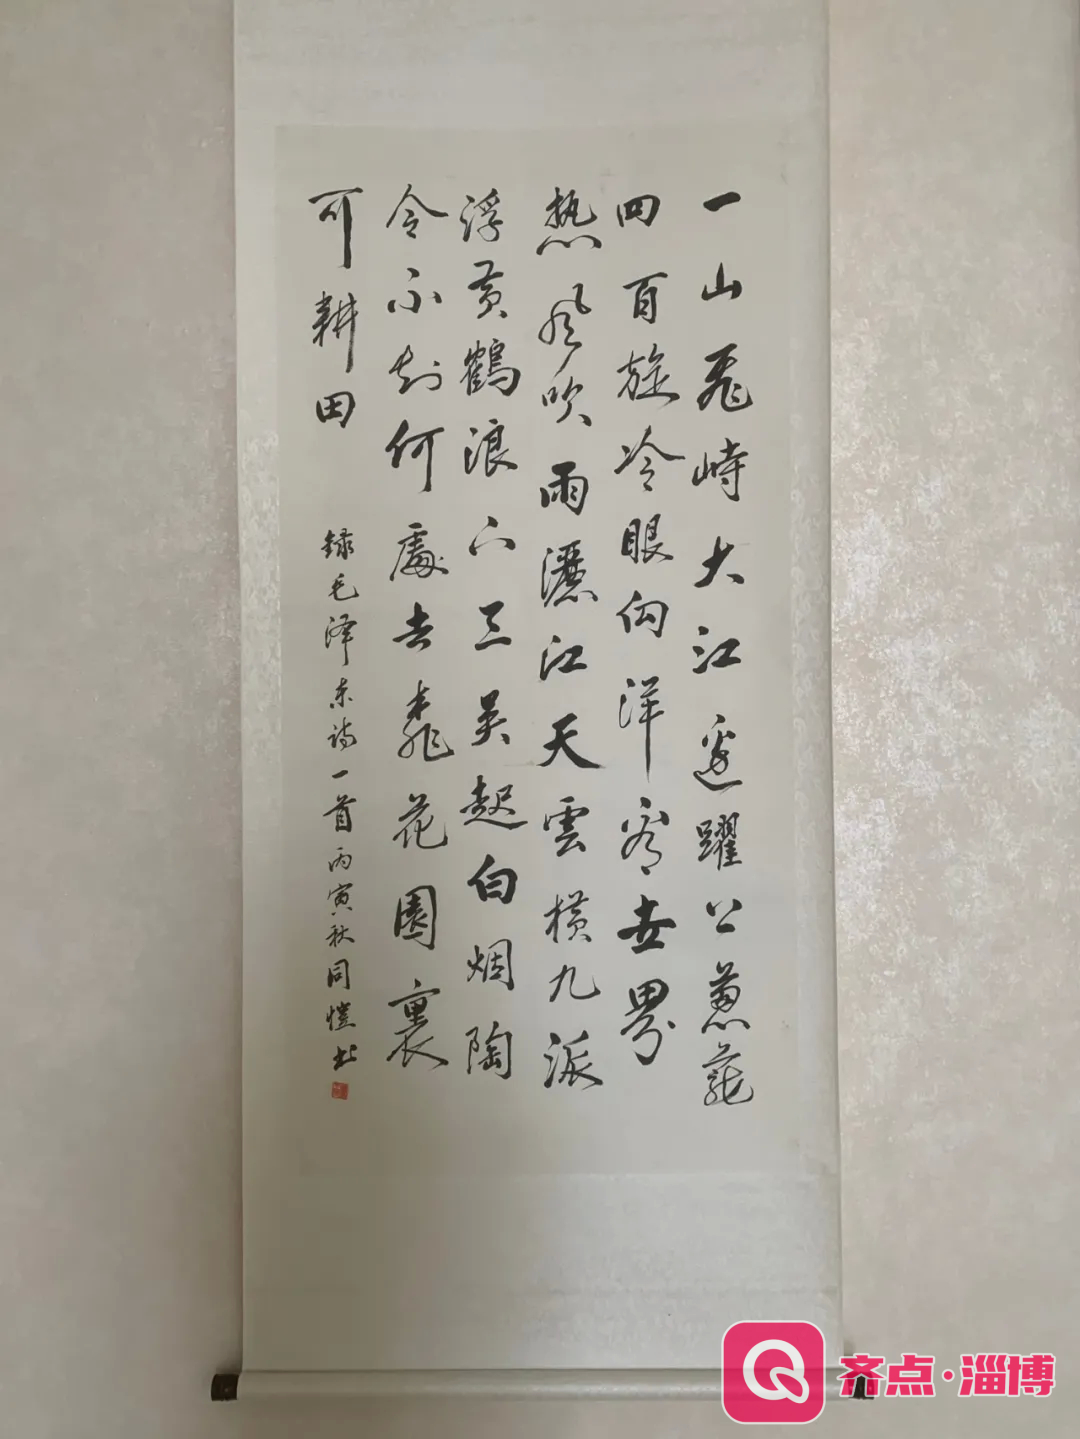 一山飛峙大江邊躍上蔥蘢
四百旋冷眼向洋看世界
热風吹雨灑江天雲橫九派
浮黄鶴浪下三吴起白烟陶
令不知何處去桃花園裏
可耕田
録毛泽东诗一首丙寅秋同愷书
齐点·淄博